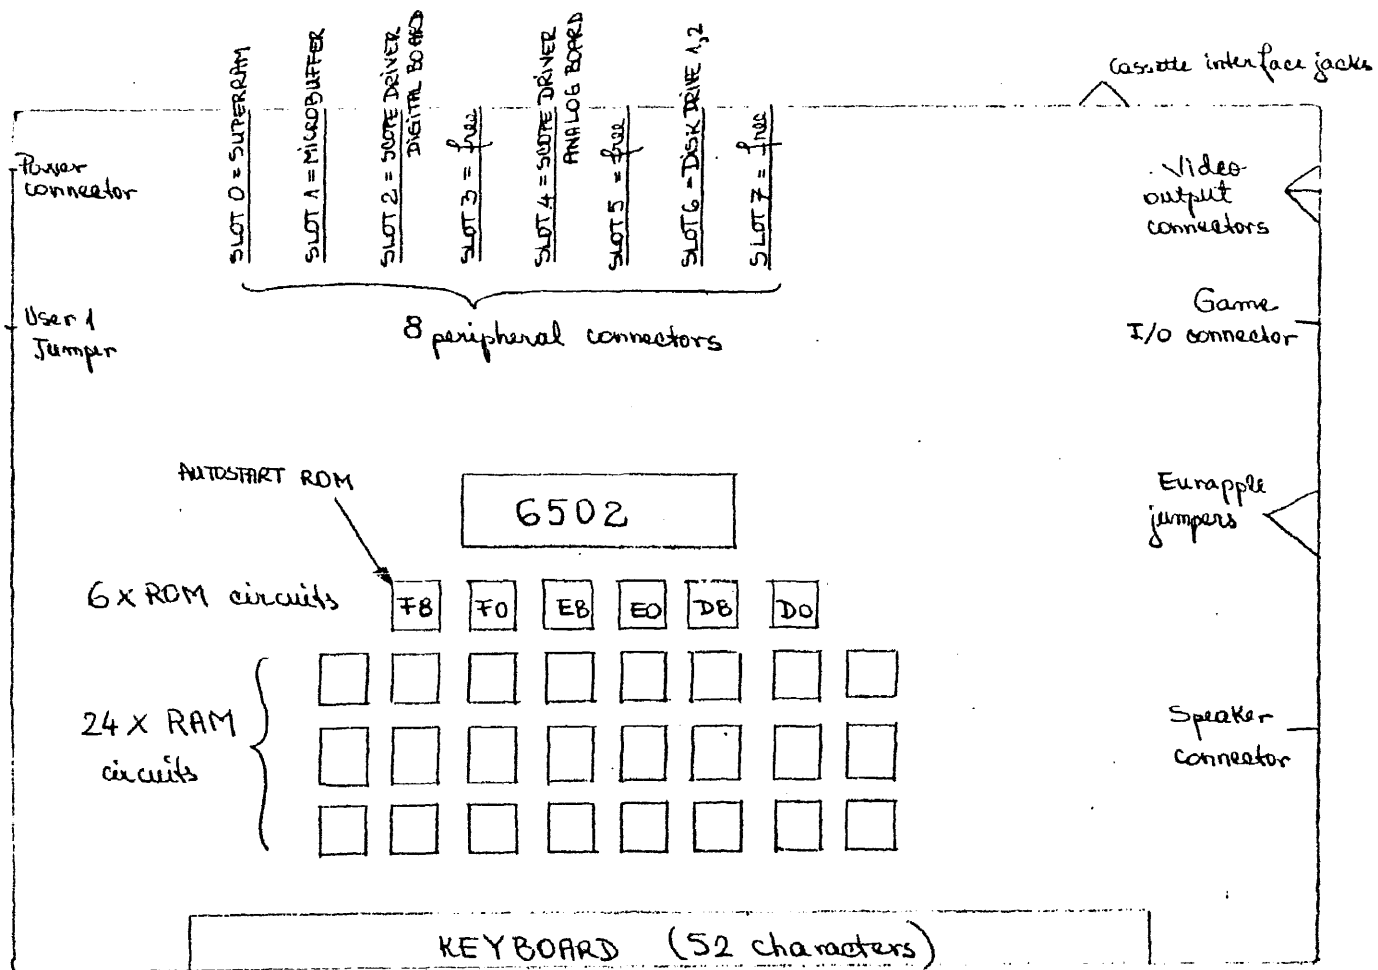 Cassette interface jacks
SLOT 0 = SUPERRAM
SLOT 1 = MICROBUFFER
SLOT 2 = SCOPE DRIVER
DIGITAL BOARD
SLOT 3 = free
SLOT 4 = SCOPE DRIVER
ANALOG BOARD
SLOT 5 = free
SLOT 6 = DISK DRIVE 1,2
SLOT 7 = free
Power
connector
Video
output
connectors
User 1
Jumper
8 peripheral connectors
Game
I/O connector
AUTOSTART ROM
6502
Eurapple
jumpers
6 x ROM circuits
F8 F0 E8 E0 D8 D0
24 x RAM
circuits
Speaker
connector
KEYBOARD (52 characters)